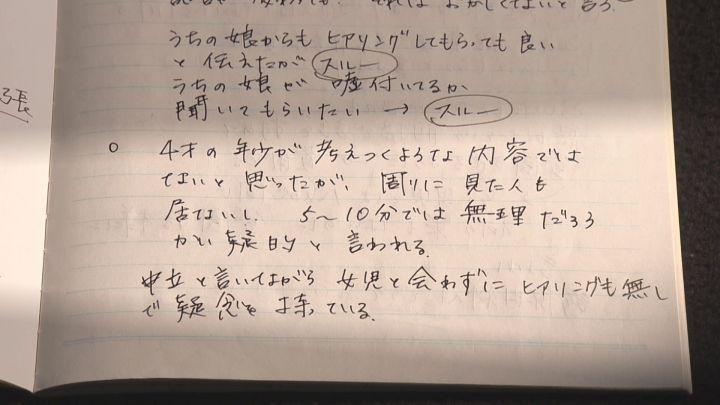 それは おかしくないと言う。
うちの娘からも ヒアリングしてもらっても良い
と伝えたが スルー
うちの娘が 嘘付いてるか
聞いてもらいたい → スルー
○ 4才の 年少が 考えつくような 内容では
ないと 思ったが、周りに 見た人も
居ないし、5〜10分では 無理 だろう
かと 疑的 と 言われる。
中立と言いながら 女児と会わずに ヒアリングも無し
で 疑念を 持っている。
張